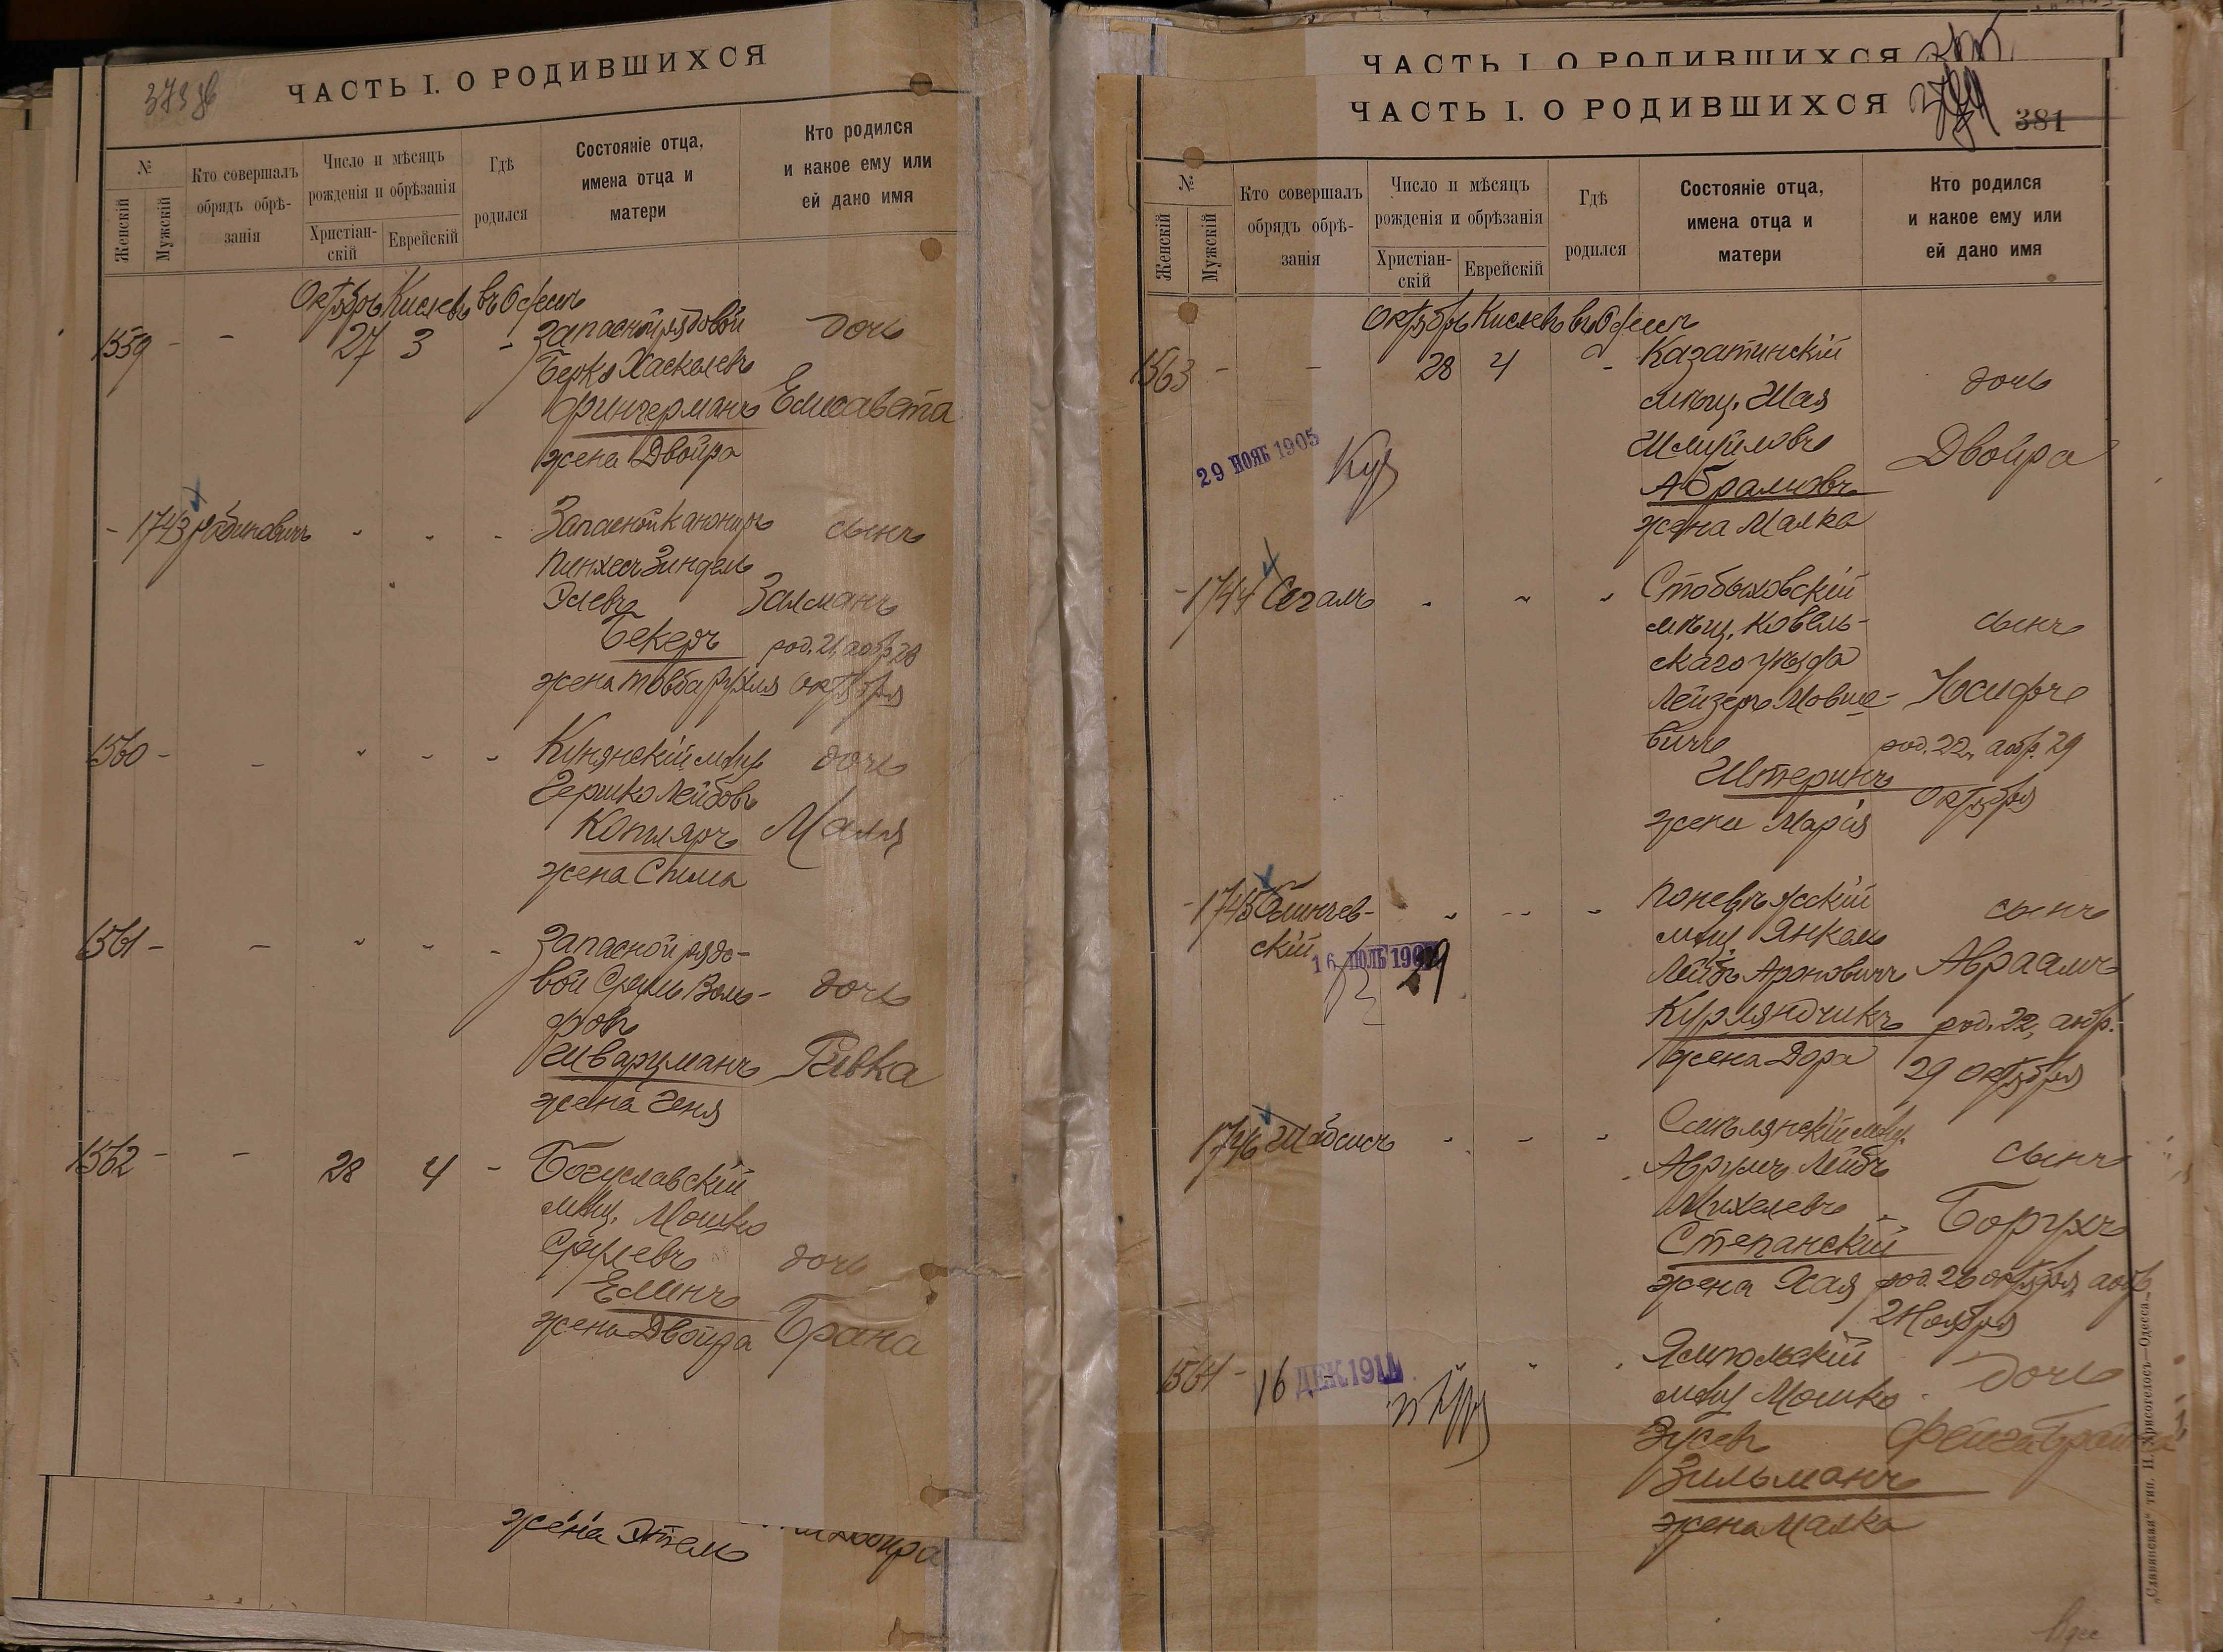 ЧАСТЬ I. О РОДИВШИХСЯ
№
Женскій
Мужскій
Кто совершалъ
обрядъ обрѣ-
занія
Число и мѣсяцъ
рожденія и обрѣзанія
Христіан-
скій
Еврейскій
Гдѣ
родился
Состояніе отца,
имена отца и
матери
Кто родился
и какое ему или
ей дано имя
Октябрь Кислевъ въ Одессѣ
1559 - - 27 3 - Запасной рядовой дочь
Берко Хаскелевъ
Фингерманъ Елисавета
жена Двойра
- 1743 Рабиновичъ " " " Запасной канониръ сынъ
Пинхосъ Зиндель
Элевъ Залманъ
Бекеръ род. 21, обр. 28
жена Товба Рухля октября
1560 - - " " " мѣщ. дочь
Гершко Лейбовъ
Котляръ Маля
жена Сима
1561 - - " " " Запасной рядо-
вой Сруль Воль- дочь
фовъ
Шварцманъ Ривка
жена Геня
1562 - - 28 4 - Богуславскій
мѣщ. Мошко
Срулевъ дочь
Елинъ
жена Двойра Брана
жена Этель
ЧАСТЬ I. О РОДИВШИХСЯ
ЧАСТЬ I. О РОДИВШИХСЯ
381
№
Женскій
Мужскій
Кто совершалъ
обрядъ обрѣ-
занія
Число и мѣсяцъ
рожденія и обрѣзанія
Христіан-
скій
Еврейскій
Гдѣ
родился
Состояніе отца,
имена отца и
матери
Кто родился
и какое ему или
ей дано имя
Октябрь Кислевъ въ Одессѣ
1563 - - 28 4 - Казатинскій
мѣщ. Шая дочь
29 НОЯБ 1905
Шмуйловъ Двойра
Абрамовъ
жена Малка
- 1744 Сегалъ " " " Стобыховскій
мѣщ. Ковель- сынъ
скаго уѣзда
Лейзеръ Мовше- Іосифъ
вичъ род. 22, обр. 29
Штеринъ октября
жена Марія
- 1745 Клинчев- " " " Поневѣжскій сынъ
скій мѣщ. Янкель
16 ІЮЛЬ
Лейбъ Ароновичъ Авраамъ
Курляндчикъ род. 22, обр.
жена Дора 29 октября
1746 Шабсисъ " " " Смѣлянскій мѣщ.
Аврумъ Лейбъ сынъ
Михелевъ Борухъ
Степанскій
жена Хая род. 26 октября, обр.
2 Ноября
1564 - - " " Ямпольскій дочь
16 ДЕК 191
мѣщ Мошко
Зусевъ Фейга
Зильманъ
жена Малка
„Славянская“ тип. Н. Хрисогелосъ—Одесса.